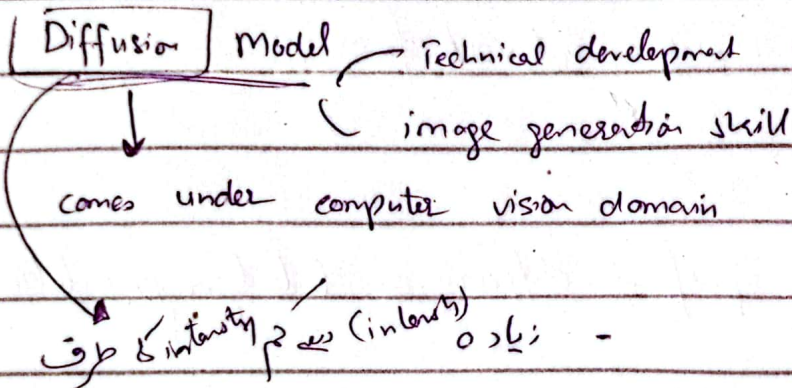 Diffusion Model
Technical development
image generation skill
comes under computer vision domain
زیادہ (intensity) سے کم intensity کی طرف